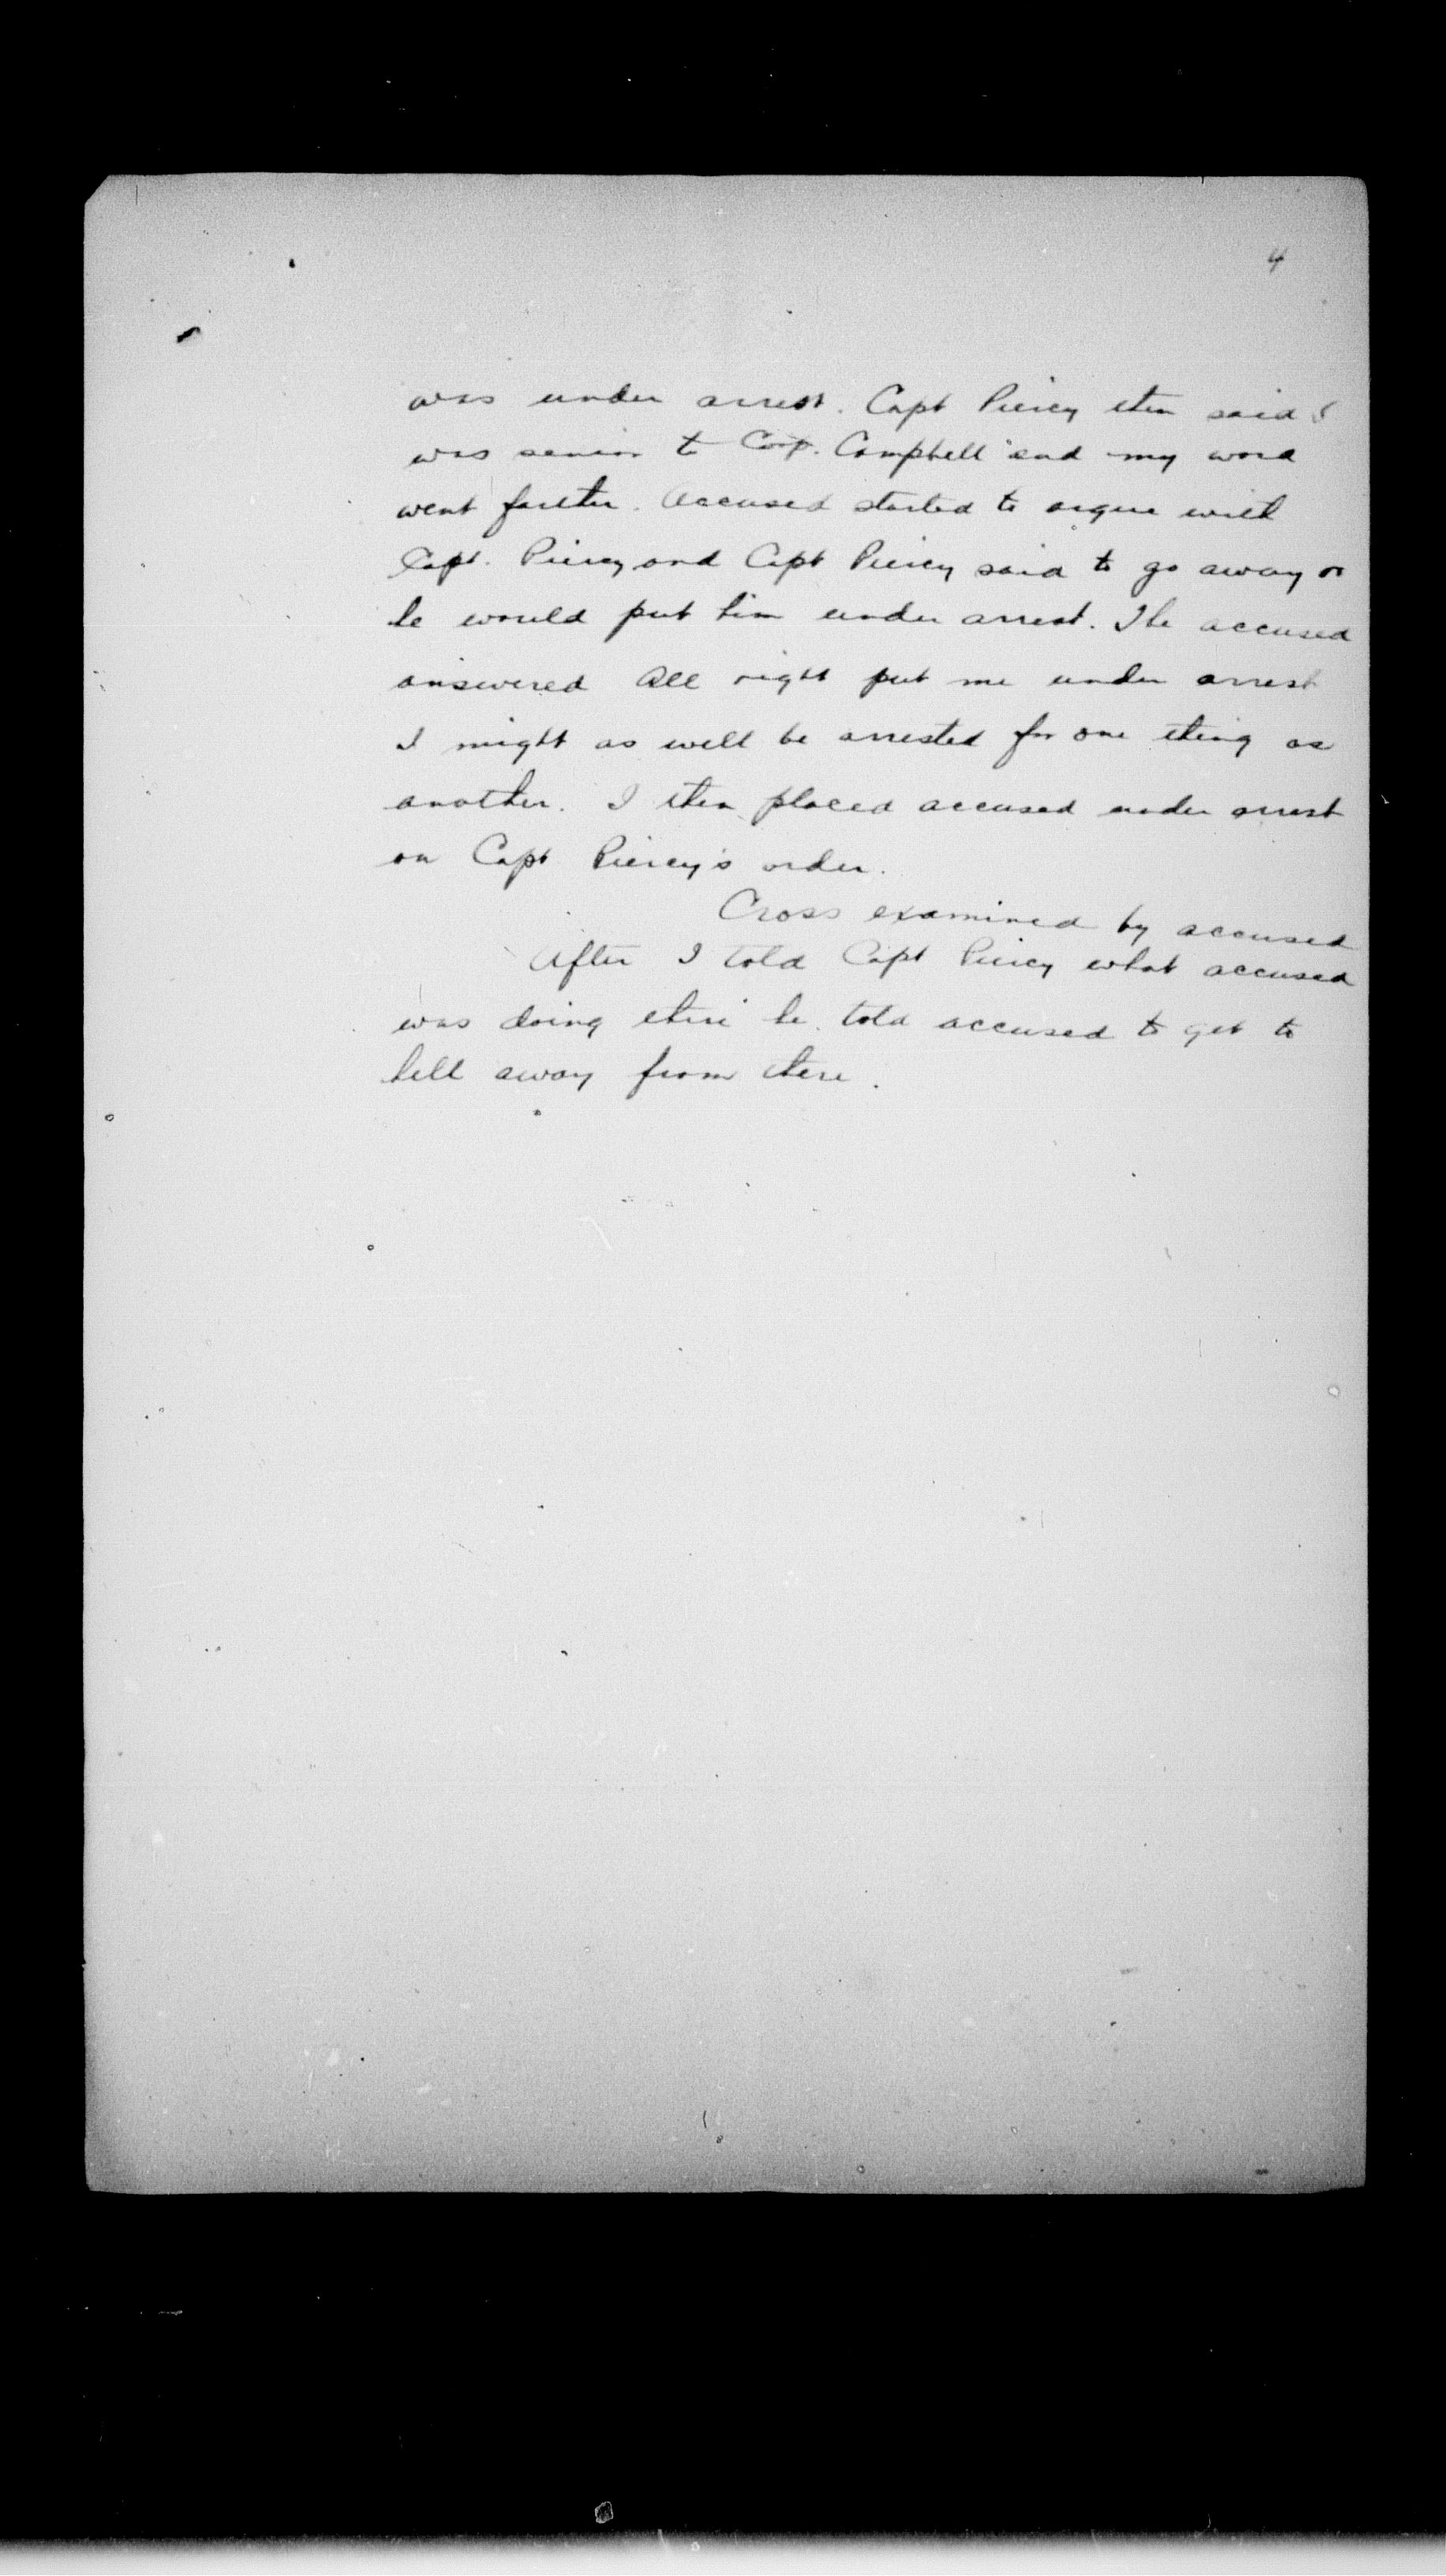 4
was under arrest. Capt Piercy then said I
was senior to Corp. Campbell and my word
went farther. Accused started to argue with
Capt. Piercy and Capt Piercy said to go away or
he would put him under arrest. The accused
answered All right put me under arrest
I might as well be arrested for one thing as
another. I then placed accused under arrest
on Capt Piercy's order.
Cross examined by accused
After I told Capt Piercy what accused
was doing there he told accused to get to
hell away from there.